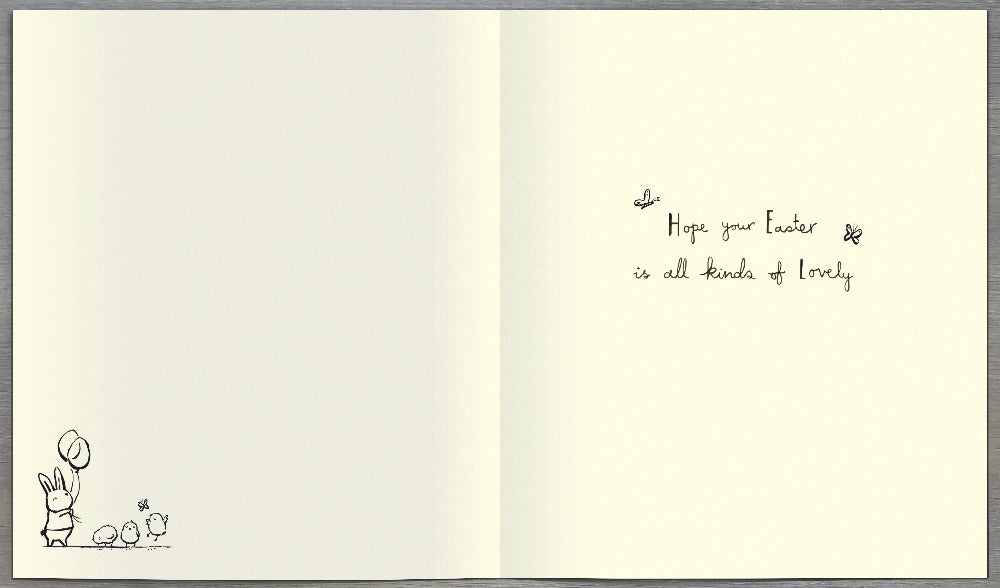 Hope your Easter
is all kinds of Lovely